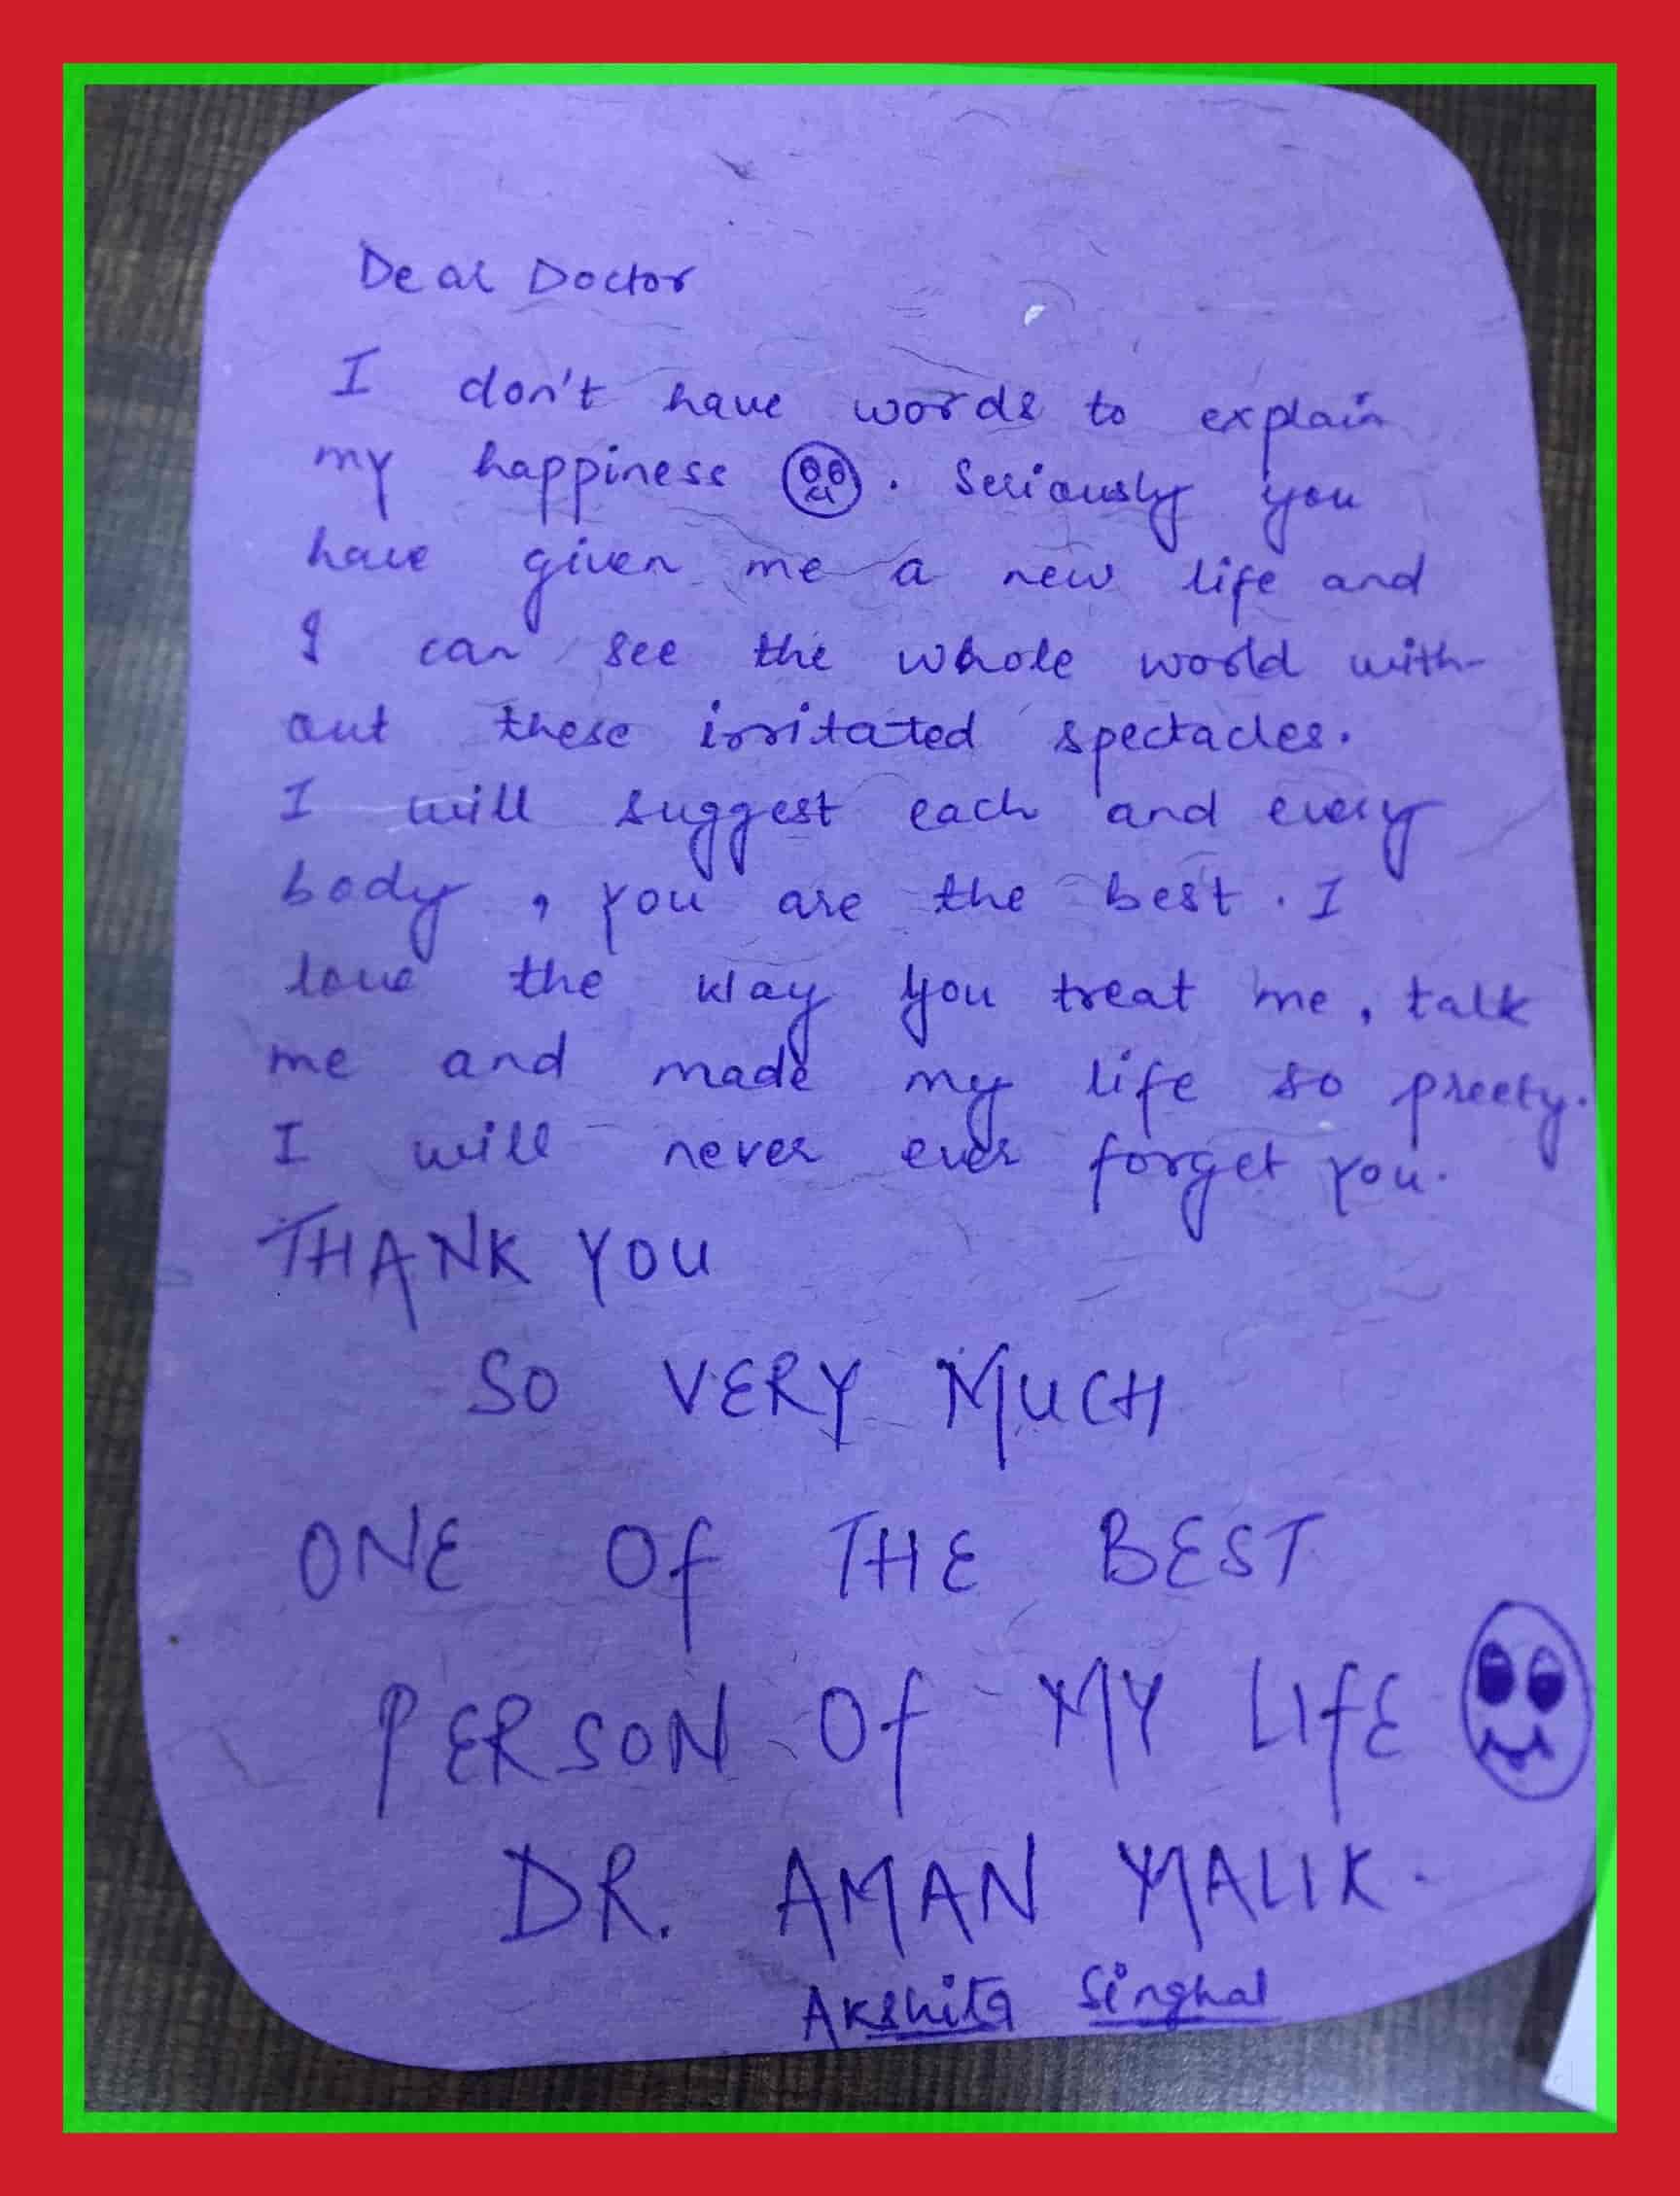 Dear Doctor
I don't have words to explain
my happiness . Seriously you
have given me a new life and
I can see the whole world with-
out these irritated spectacles.
I will suggest each and every
body , you are the best . I
love the way you treat me , talk
me and made my life so preety.
I will never ever forget you.
THANK YOU
SO VERY MUCH
ONE Of THE BEST
PERSON Of MY LIfE
DR. AMAN MALIK.
Akshita Singhal